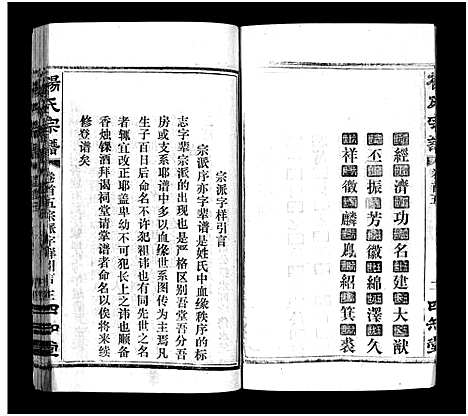 經濟功名建大猷
丕振芳徽綿澤久
祥徵麟鳳紹箕裘
宗派字样引言
宗派序亦字辈谱是姓氏中血缘秩序的标
志字辈宗派的出现也是严格区别吾堂吾分吾
房或支系耶谱中世序的传统以世序为主焉凡
生子百日后命名不许犯祖讳也有同先世之名
者辄宜改正耶盖卑幼不可犯长上之讳也顺备
香烛锞酒拜谒祠堂请掌谱者命名以俟将来续
修登谱矣
楊氏宗譜
卷首五宗派字样引言
四知堂